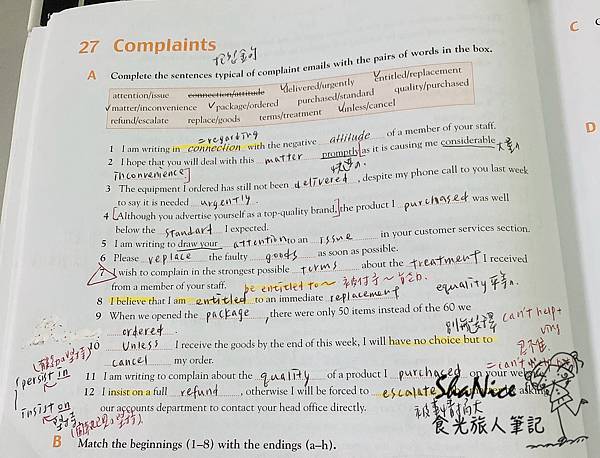 C
27 Complaints
抱怨的
A Complete the sentences typical of complaint emails with the pairs of words in the box.
attention/issue connection/attitude ✓delivered/urgently ✓entitled/replacement
✓matter/inconvenience ✓package/ordered purchased/standard quality/purchased
refund/escalate replace/goods terms/treatment ✓unless/cancel
D
=regarding
1 I am writing in connection with the negative attitude of a member of your staff.
2 I hope that you will deal with this matter promptly as it is causing me considerable 大量
inconvenience.
3 The equipment I ordered has still not been delivered, despite my phone call to you last week
to say it is needed urgently.
4 Although you advertise yourself as a top-quality brand, the product I purchased was well
below the standard I expected.
5 I am writing to draw your attention to an issue in your customer services section.
6 Please replace the faulty goods as soon as possible.
7 I wish to complain in the strongest possible terms about the treatment I received
from a member of your staff. be entitled to~
8 I believe that I am entitled to an immediate replacement equality
9 When we opened the package, there were only 50 items instead of the 60 we
ordered.
別無選擇 can't help+
Ving
10 Unless I receive the goods by the end of this week, I will have no choice but to
cancel my order.
persist in
11 I am writing to complain about the quality of a product I purchased on your
insist on
12 I insist on a full refund, otherwise I will be forced to escalate
our accounts department to contact your head office directly.
ShaNice
食光旅人筆記
B Match the beginnings (1–8) with the endings (a–h).